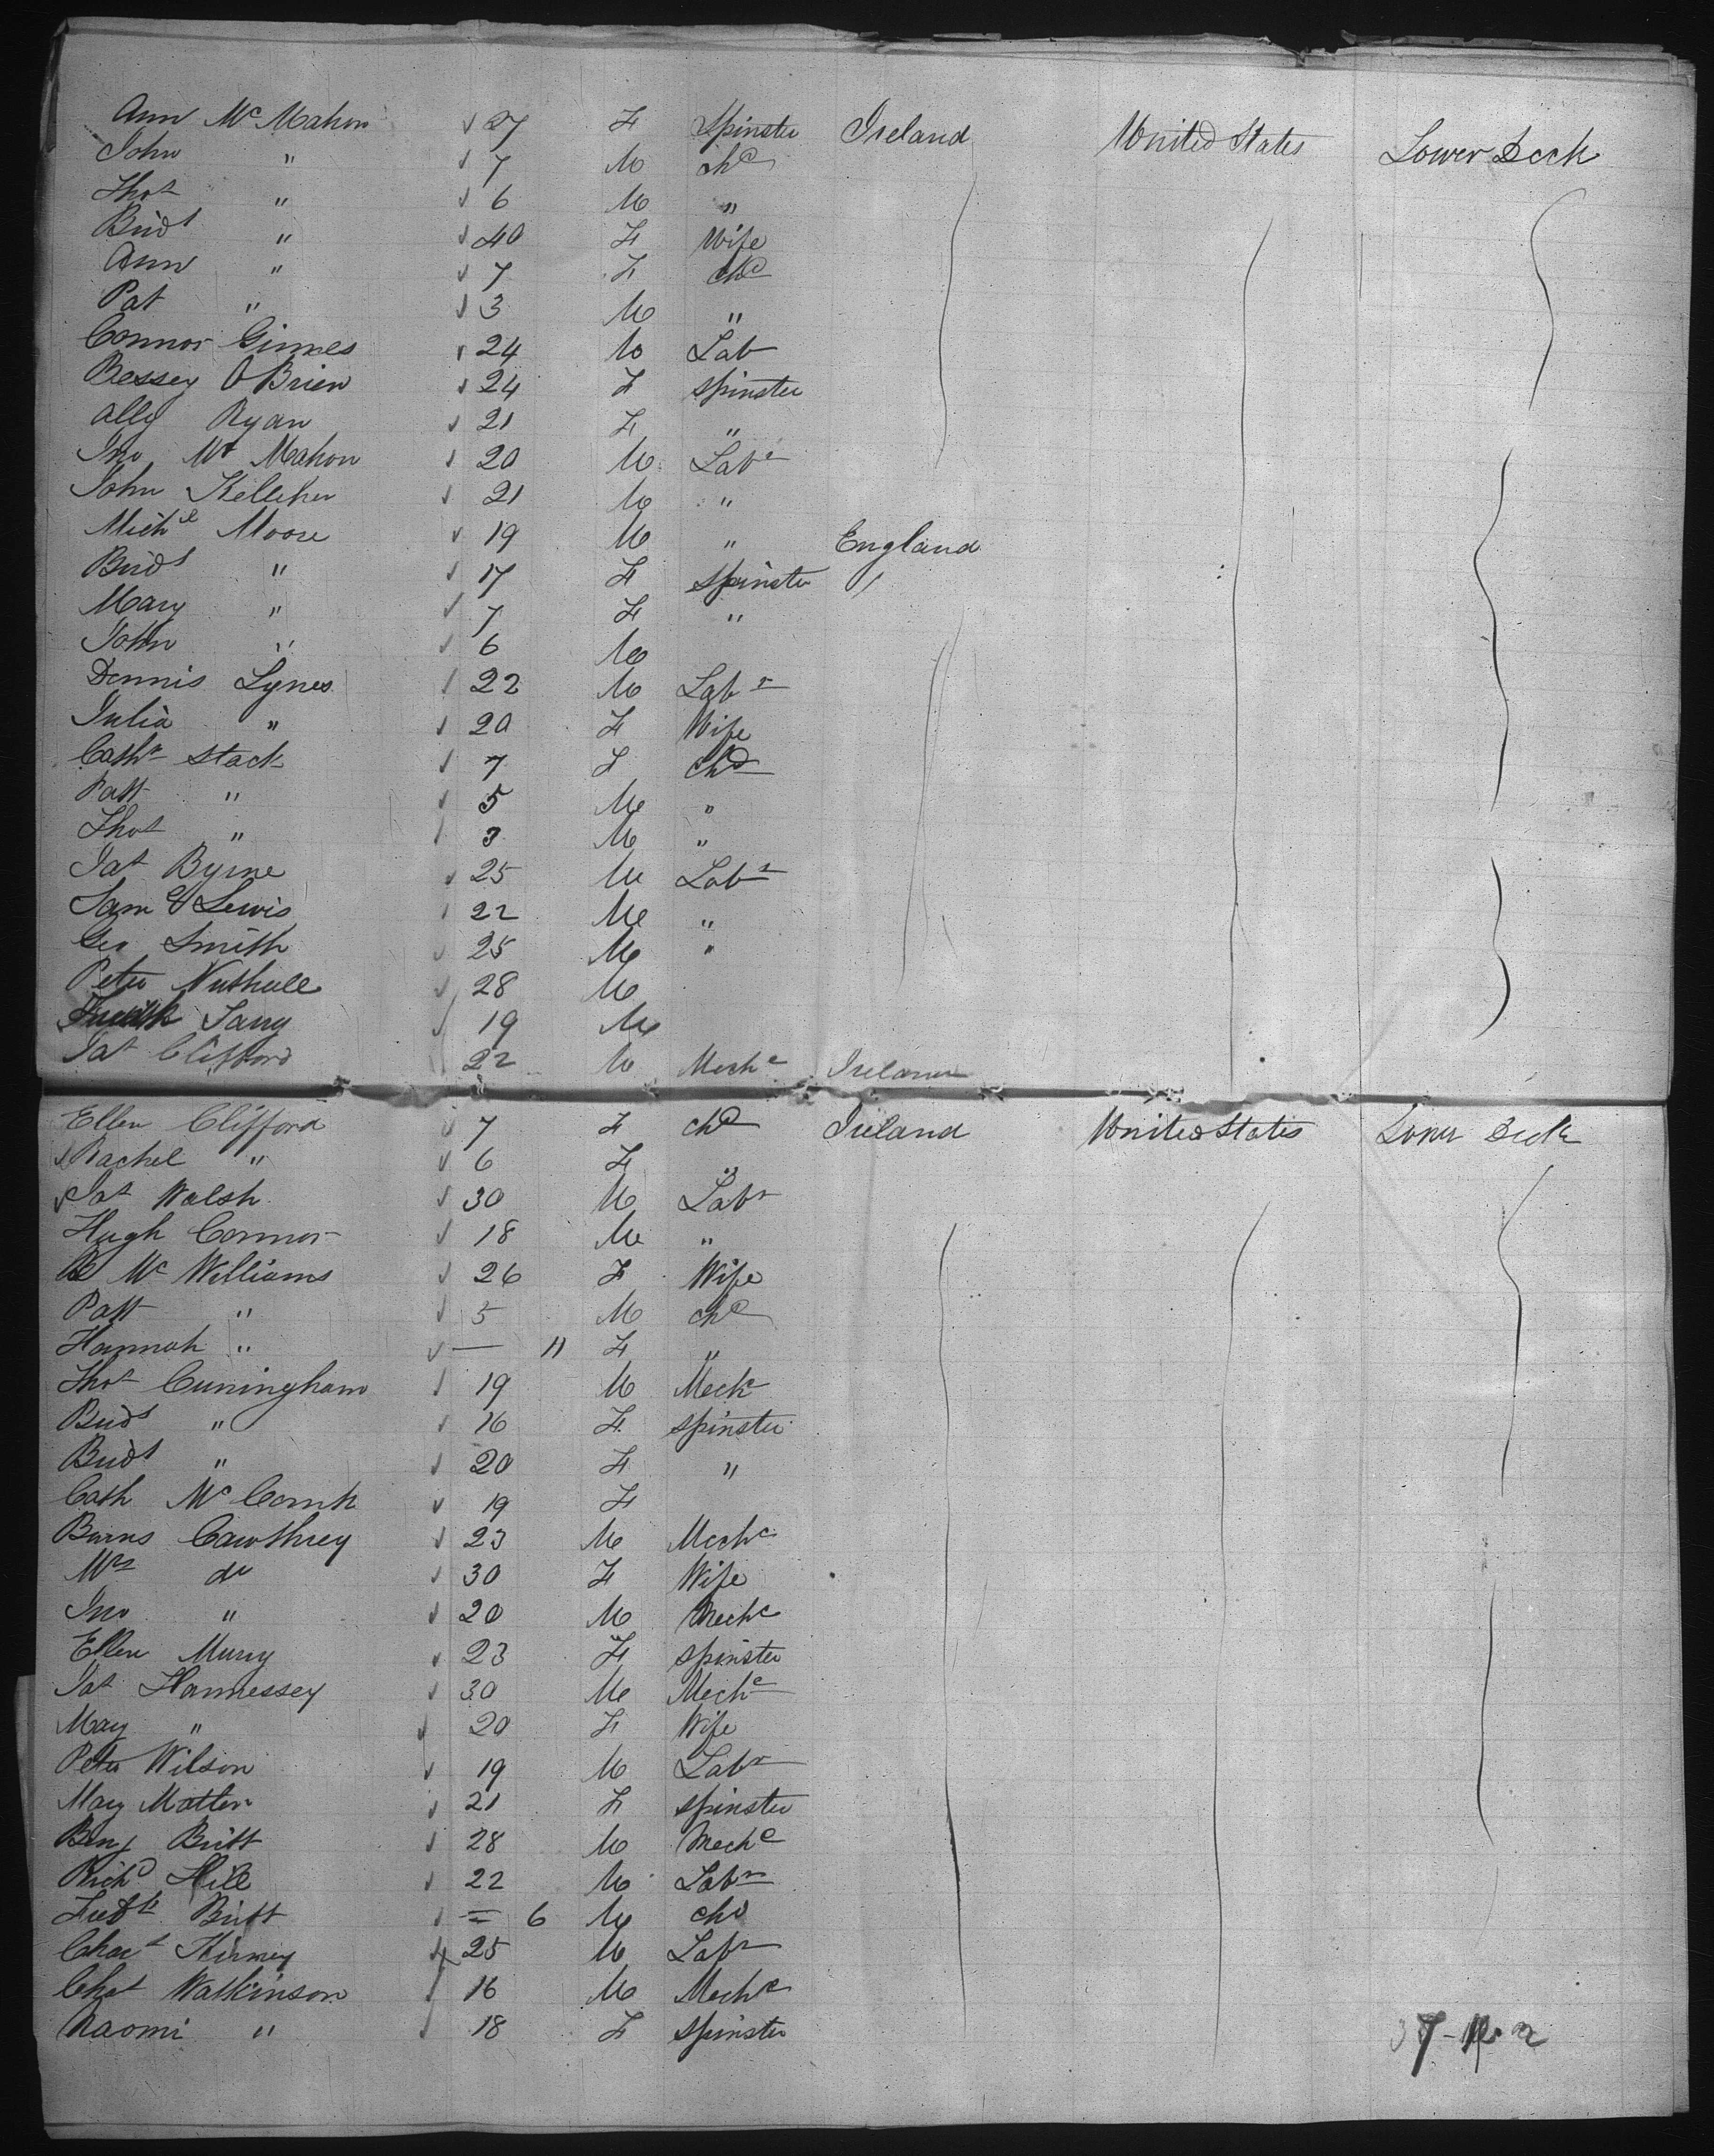 Ann McMahon 27 F Spinster Ireland United States Lower Deck
John " 7 M chd
Thos " 6 M "
Bridt " 40 F Wife
Ann " 7 F chd
Pat " 3 M "
Connor Ginnes 24 M Lab
Bessey OBrien 24 F spinster
Ally Ryan 21 F "
Jno Mc Mahon 20 M Labr
John Kelleher 21 M "
Michl Moore 19 M " England
Bridt " 17 F spinster
Mary " 7 F "
John " 6 M
Dennis Lynes 22 M Labr
Julia " 20 F Wife
Cathn Stack 7 F chd
Patt " 5 M "
Thos " 3 M "
Jas Byrne 25 M Labr
Saml Lewis 22 M "
Geo Smith 25 M "
Peter Nuthall 28 M
19 M
Jas Clifford 22 M Mechc Ireland
Ellen Clifford 7 F chd Ireland United States Lower Deck
Rachel " 6 F "
Jas Walsh 30 M Labr
Hugh Connor 18 M "
Mc Williams 26 F Wife
Patt " 5 M chd
Hannah " — 11 F "
Thos Cuningham 19 M Mechc
Bridt " 16 F spinster
Bridt " 20 F "
Cath Mc 19 F
Burns Cawthrey 23 M Mechc
Mrs do 30 F Wife
Jno " 20 M Mechc
Ellen Murry 23 F spinster
Jas Hannessey 30 M Mechc
May " 20 F Wife
Peter Wilson 19 M Labr
Mary Matter 21 F spinster
Benj Britt 28 M Mechc
Richd Hill 22 M Labr
Fredk Britt — 6 M chd
Chas 25 M Labr
Chas Watkinson 16 M Mechc
Naomi " 18 F spinster